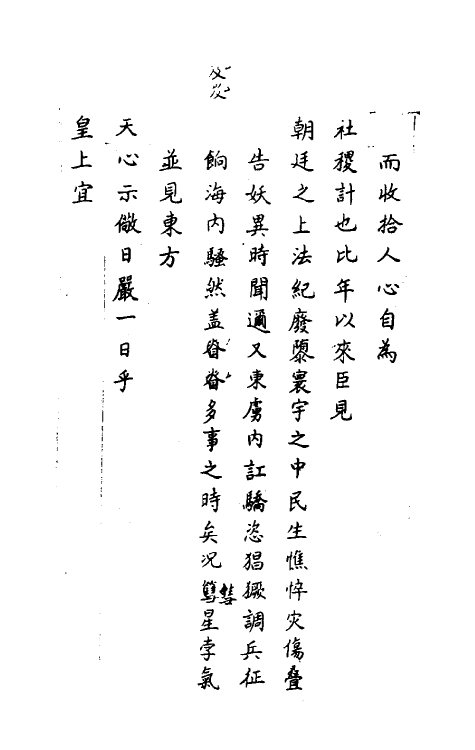 而收拾人心自為
社稷計也比年以來臣見
朝廷之上法紀廢隳寰宇之中民生憔悴灾傷疊
告妖異時聞邇又東虜内訌驕恣猖獗調兵征
餉海内騷然盖眷眷多事之時矣况彗星孛氣
並見東方
天心示儆日嚴一日乎
皇上宜
岌岌